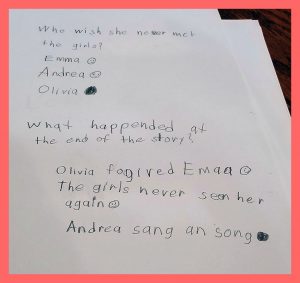 Who wish she never met
the girls?
Emma
Andrea
Olivia
What happended at
the end of the story?
Olivia fogived Emaa
The girls never seen her
again
Andrea sang an song